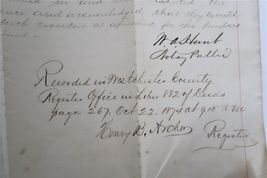 and acknowledged that they
executors as aforesaid for the purposes
W. A. Hunt
Notary Public
Recorded in Westchester County
Register Office in Liber 882 of Deeds
page 267. Oct 22. 1874 at 9 10 A M
Henry B. Archer
Register